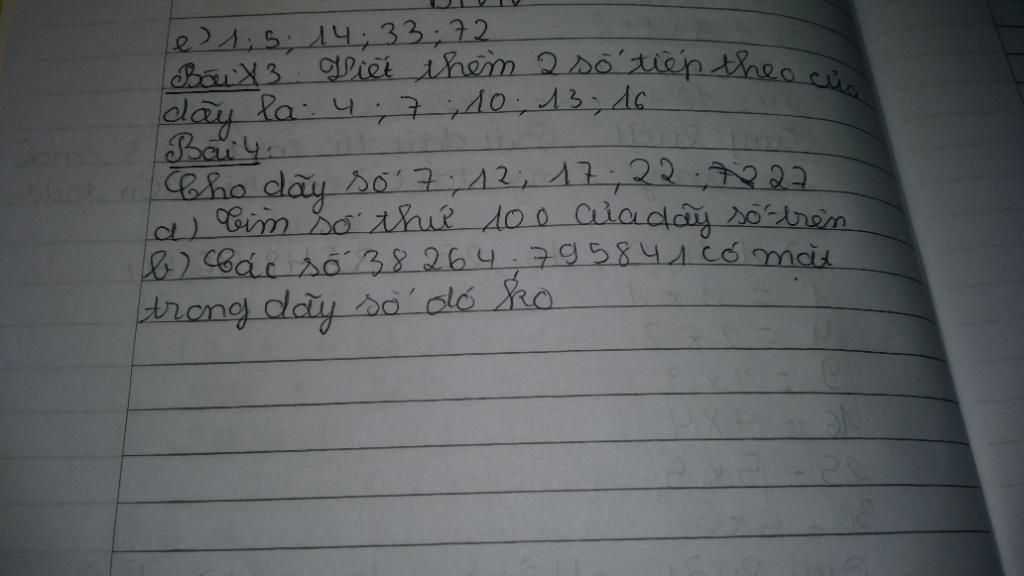 e) 1; 5; 14; 33; 72
Bài 3: Viết thêm 2 số tiếp theo của
dãy là: 4; 7; 10; 13; 16
Bài 4:
Cho dãy số 7; 12; 17; 22; 27
a) Tìm số thứ 100 của dãy số trên
b) Các số 38264; 795841 có mặt
trong dãy số đó ko